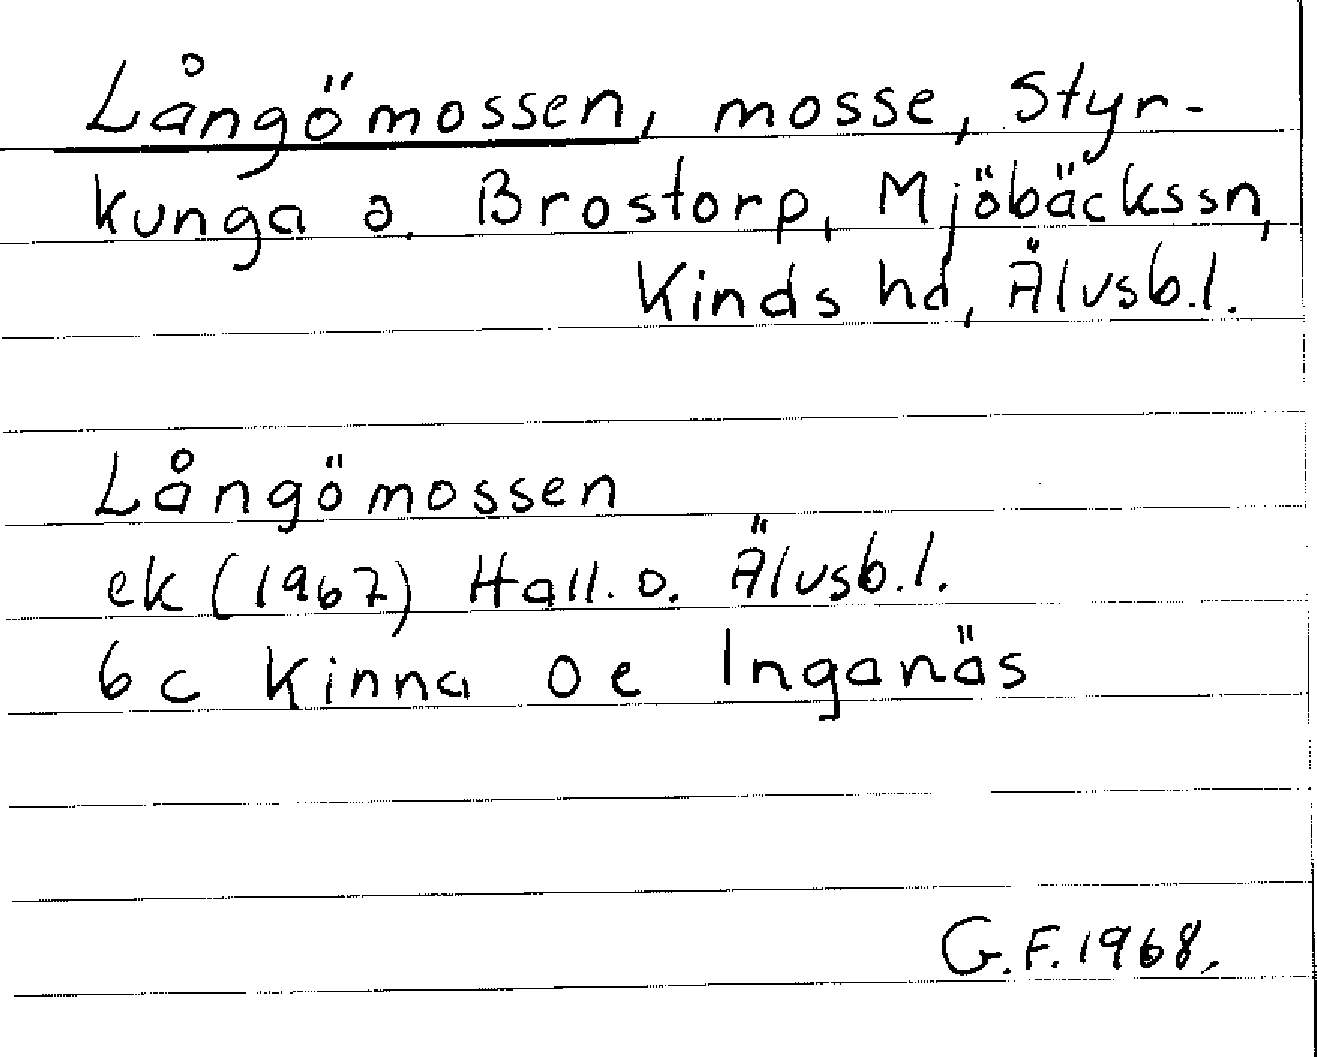 Långömossen, mosse, Styr-
kunga o. Brostorp, Mjöbäckssn,
Kinds hd, Älvsb.l.
Långömossen
ek (1967) Hall. o. Älvsb.l.
6c Kinna 0e Inganäs
G.F. 1968.